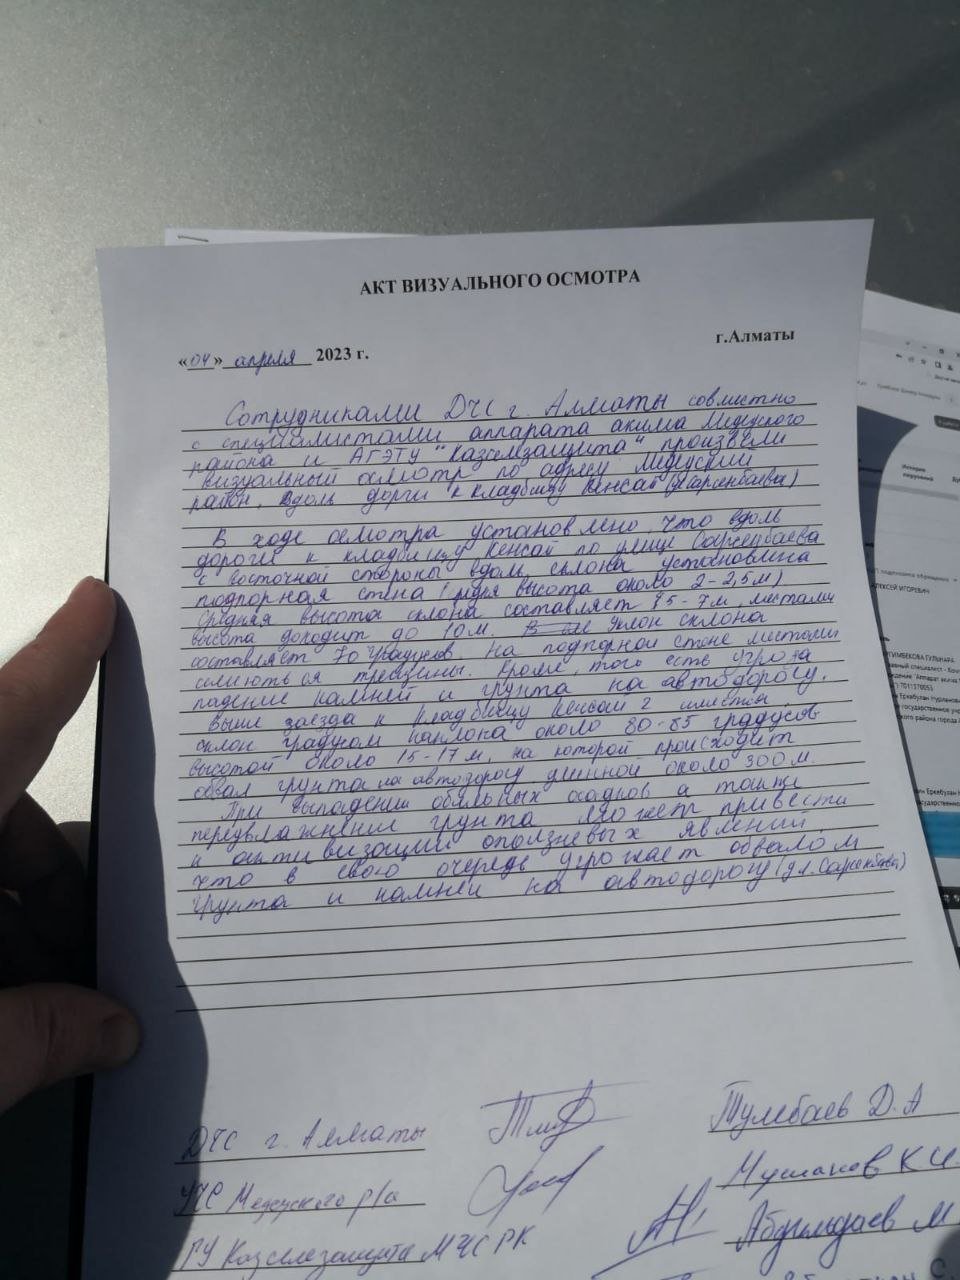 АКТ ВИЗУАЛЬНОГО ОСМОТРА
«04» апреля 2023 г.
г.Алматы
Сотрудниками ДЧС г. Алматы совместно
с специалистами аппарата акима Медеуского
района и АГЭТУ "Казселезащита" произвели
визуальный осмотр по адресу Медеуский
район, вдоль дороги к кладбищу Кенсай (Сарсенбаева)
В ходе осмотра установлено, что вдоль
дороги к кладбищу Кенсай по улице Сарсенбаева
с восточной стороны вдоль склона установлена
подпорная стена (высота около 2-2,5м)
Средняя высота склона составляет 5-7м местами
высота доходит до 10м. Уклон склона
составляет 70 градусов. На подпорной стене местами
имеються трещины. Кроме того есть угроза
падение камней и грунта на автодорогу.
Выше заезда к кладбищу Кенсай 2 имеется
склон градусом наклона около 80-85 градусов
высотой около 15-17м, на которой происходит
обвал грунта на автодорогу длинной около 300м.
При выпадении обильных осадков а также
переувлажнение грунта может привести
к активизации оползневых явлений,
что в свою очередь угрожает обвалом
грунта и камней на автодорогу (ул. Сарсенбаева)
ДЧС г. Алматы
Тулебаев Д.А
УЧС Медеуского р/а
Мусанов К
ГУ Казселезащита МЧС РК
Абдильдаев М
История
поручений
АЛЕКСЕЙ ИГОРЕВИЧ
ГИМБЕКОВА ГУЛЬНАРА